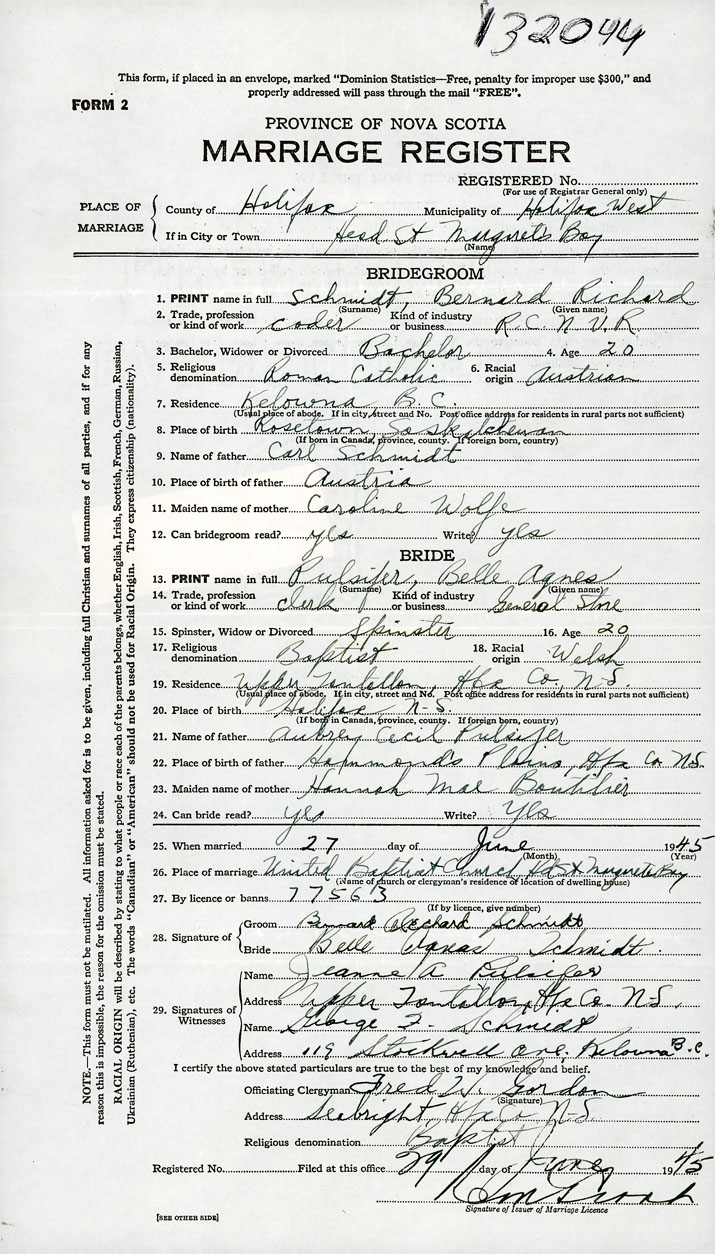 132044
This form, if placed in an envelope, marked "Dominion Statistics—Free, penalty for improper use $300," and
properly addressed will pass through the mail "FREE".
FORM 2
PROVINCE OF NOVA SCOTIA
MARRIAGE REGISTER
REGISTERED No.
(For use of Registrar General only)
PLACE OF MARRIAGE
County of Halifax Municipality of Halifax West
If in City or Town Head St Margarets Bay
(Name)
BRIDEGROOM
1. PRINT name in full Schmidt, Bernard Richard
(Surname) (Given name)
2. Trade, profession or kind of work coder Kind of industry or business R.C.N.V.R.
3. Bachelor, Widower or Divorced Bachelor 4. Age 20
5. Religious denomination Roman Catholic 6. Racial origin Austrian
7. Residence Kelowna, B.C.
(Usual place of abode. If in city, street and No. Post office address for residents in rural parts not sufficient)
8. Place of birth Rosetown, Saskatchewan
(If born in Canada, province, county. If foreign born, country)
9. Name of father Carl Schmidt
10. Place of birth of father Austria
11. Maiden name of mother Caroline Wolfe
12. Can bridegroom read? yes Write? yes
BRIDE
13. PRINT name in full Pulsifer, Belle Agnes
(Surname) (Given name)
14. Trade, profession or kind of work Clerk Kind of industry or business General Store
15. Spinster, Widow or Divorced Spinster 16. Age 20
17. Religious denomination Baptist 18. Racial origin Welsh
19. Residence Upper Tantallon, Hfx Co., N.S.
(Usual place of abode. If in city, street and No. Post office address for residents in rural parts not sufficient)
20. Place of birth Halifax N.S.
(If born in Canada, province, county. If foreign born, country)
21. Name of father Aubrey Cecil Pulsifer
22. Place of birth of father Hammonds Plains, Hfx Co N.S.
23. Maiden name of mother Hannah Mae Boutilier
24. Can bride read? yes Write? Yes
25. When married 27 day of June 1945
(Month) (Year)
26. Place of marriage United Baptist Church, Hd St Margarets Bay
(Name of church or clergyman's residence or location of dwelling house)
27. By licence or banns 77563
(If by licence, give number)
28. Signature of
Groom Bernard Richard Schmidt
Bride Belle Schmidt.
29. Signatures of Witnesses
Name Jeanne A Pulsifer
Address Upper Tantallon, Hfx Co. N-S.
Name George F. Schmidt
Address 119 Stockwell ave, Kelowna B.C.
I certify the above stated particulars are true to the best of my knowledge and belief.
Officiating Clergyman Fred W. Gordon
(Signature)
Address Seabright, Hfx Co N-S.
Religious denomination Baptist
Registered No. Filed at this office 29 day of June 1945
Signature of Issuer of Marriage Licence
[SEE OTHER SIDE]
NOTE.—This form must not be mutilated. All information asked for is to be given, including full Christian and surnames of all parties, and if for any
reason this is impossible, the reason for the omission must be stated.
RACIAL ORIGIN will be described by stating to what people or race each of the parents belongs, whether English, Irish, Scottish, French, German, Russian,
Ukrainian (Ruthenian), etc. The words "Canadian" or "American" should not be used for Racial Origin. They express citizenship (nationality).